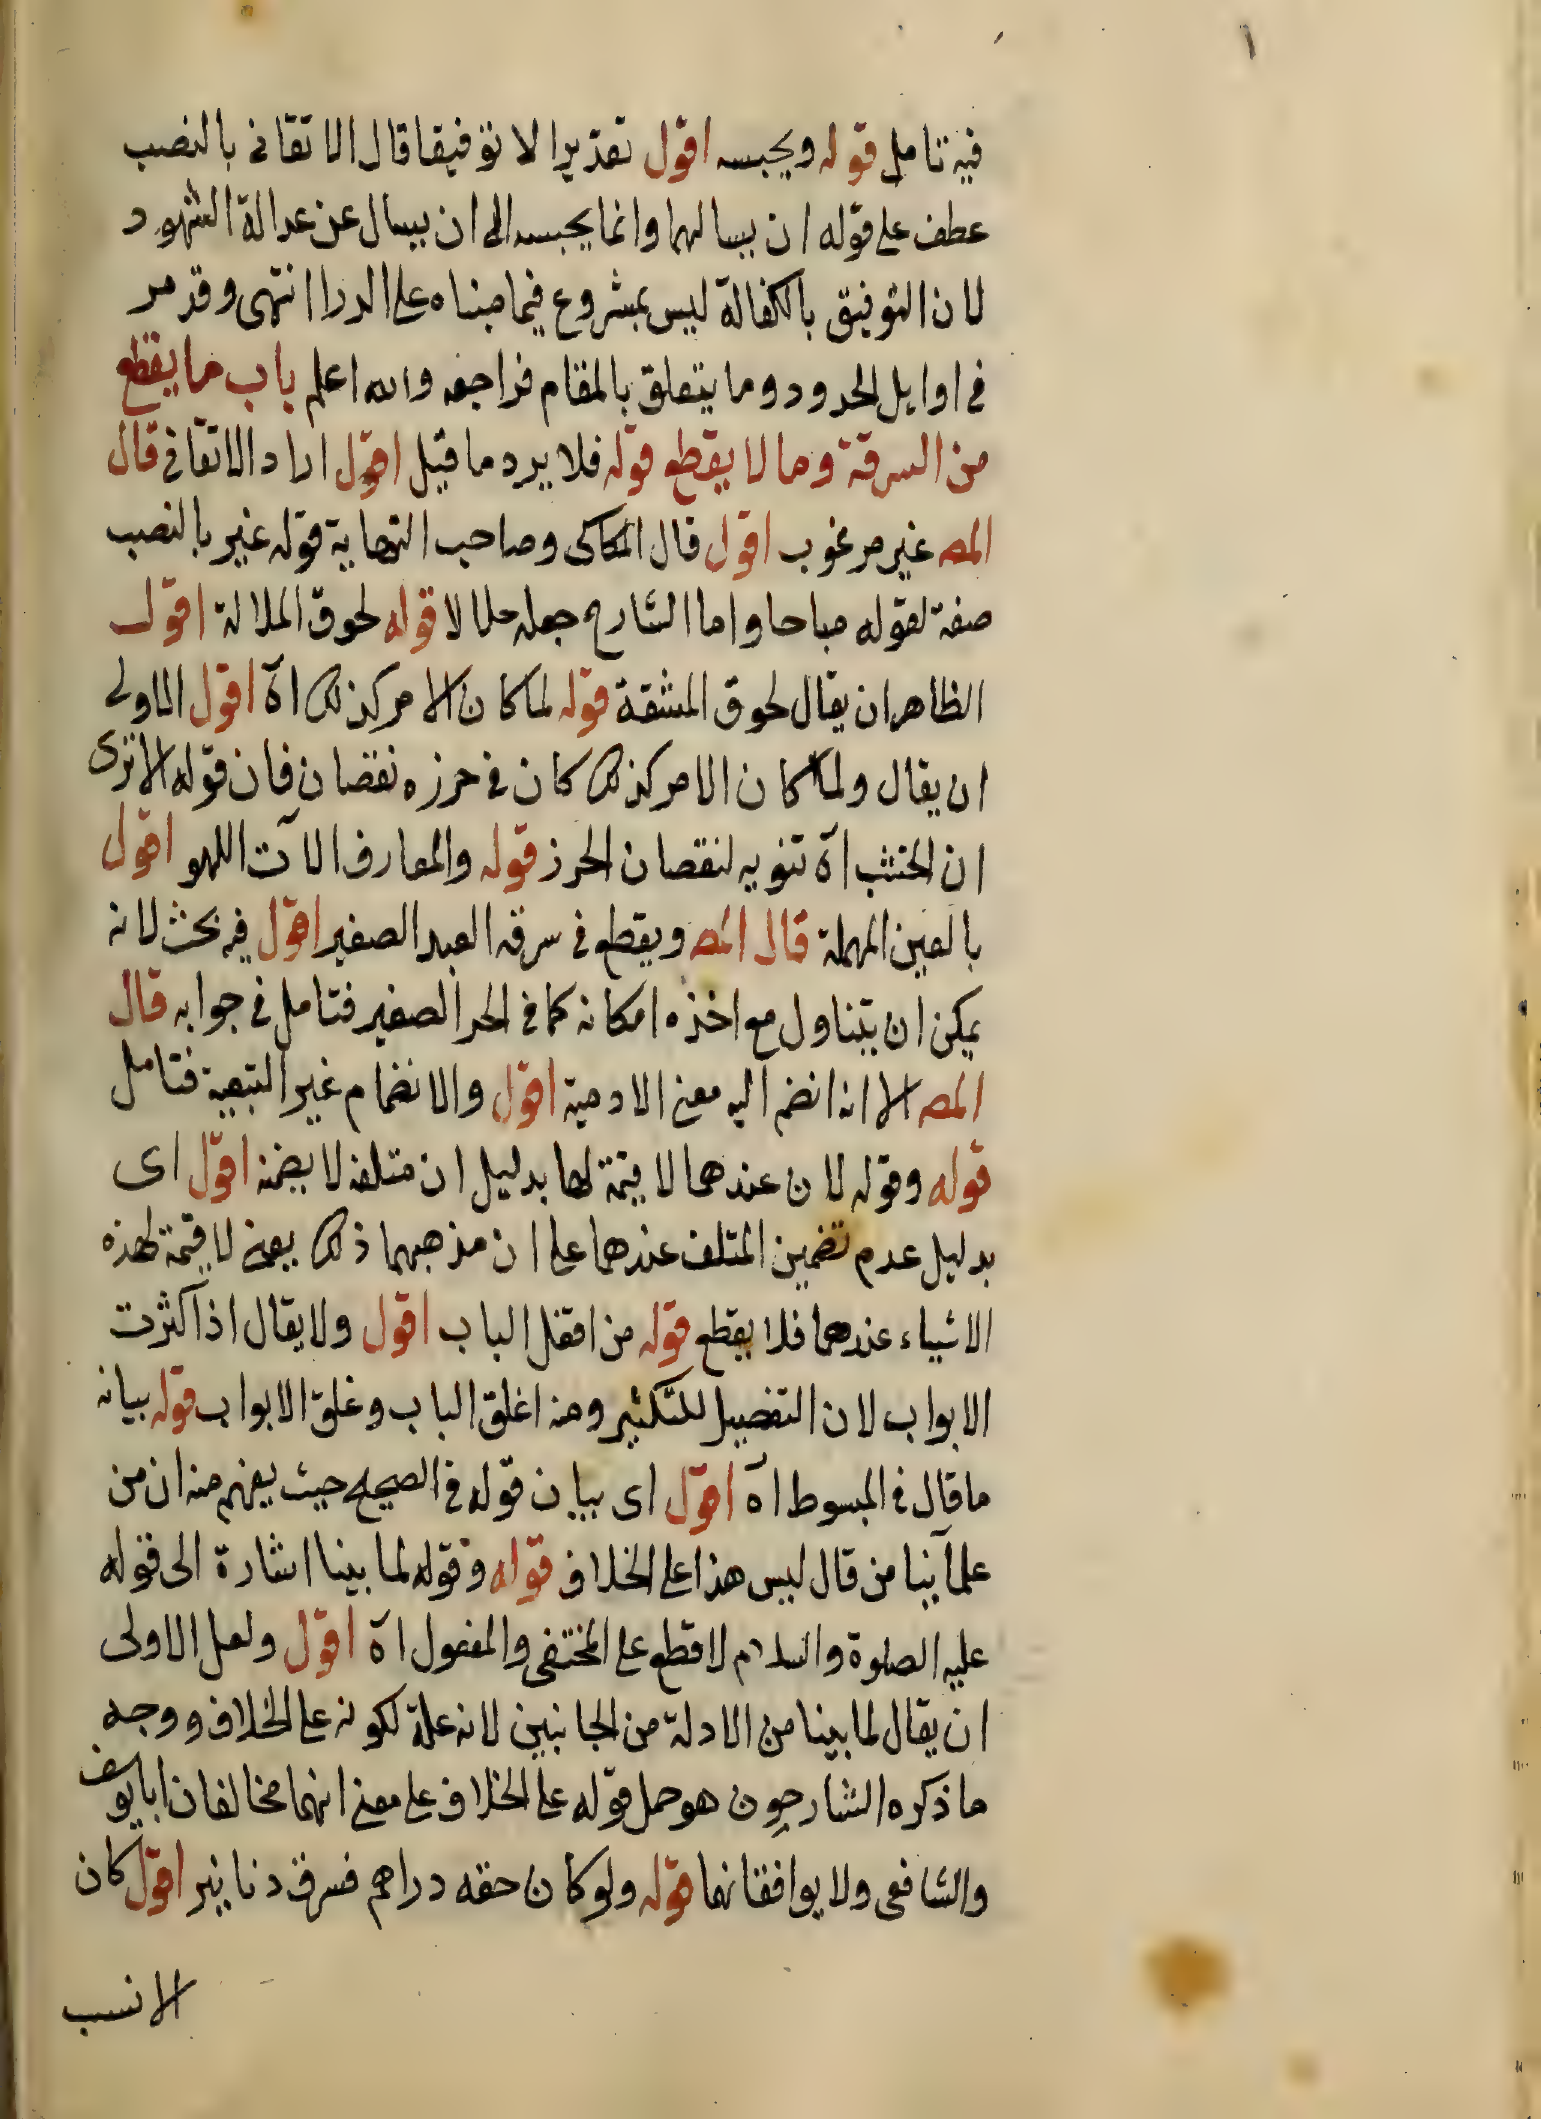 فيه تامل قوله ويحبسه اقول تعذيرا لا توفيقا قال الاتقانى بالنصب
عطف على قوله ان يسالهما وانما يحبسه الى ان يسال عن عدالة الشهود
لان التوفيق بالكفالة ليس بمشروع فيما مبناه على الدرا انتهى وقد مر
فى اوايل الحدود وما يتعلق بالمقام فراجعه والله اعلم باب ما يقطع
من السرقة وما لا يقطع قوله فلا يرد ما قيل اقول اراد الاتقانى قال
المص غير مرغوب اقول قال الكاكى وصاحب النهاية قوله غير بالنصب
صفة لقوله مباحا واما الشارح جعله حالا لا قوله لحوق الملالة اقول
الظاهر ان يقال لحوق المشقة قوله لما كان الامر كذلك اه اقول الاولى
ان يقال ولما كان الامر كذلك كان فى حرزه نقصان فان قوله الا ترى
ان الخشب اه تنويه لنقصان الحرز قوله والمعارف الآت اللهو اقول
بالعين المهملة قال المص ويقطع فى سرقه العبد الصغير اقول فيه بحث لانه
يمكن ان يتناول مع اخذه امكانه كما فى الحر الصغير فتامل فى جوابه قال
المص الا انه انضم اليه معنى الادمية اقول والانضمام غير التبعية فتامل
قوله وقوله لان عندهما لا قيمة لها بدليل ان متلفه لا يضمنه اقول اى
بدليل عدم تضمين المتلف عندهما على ان مذهبهما ذلك يعنى لا قيمة لهذه
الاشياء عندهما فلا يقطع قوله من اقفل الباب اقول ولا يقال اذا كثرت
الابواب لان التفضيل للتكثير ومنه اغلق الباب وغلق الابواب قوله بيانه
ما قال فى المبسوط اه اقول اى بيان قوله فى الصحيح حيث يفهم منه ان من
علمآئنا من قال ليس هذا على الخلاف قوله وقوله لما بينا اشارة الى قوله
عليه الصلوة والسلام لا قطع على المختفى والمفعول اه اقول ولعل الاولى
ان يقال لما بينا من الادلة من الجانبين لانه علة لكونه على الخلاف ووجه
ما ذكره الشارحون هو حمل قوله على الخلاف على معنى انهما مخالفان ابا يوسف
والشافعى ولا يوافقانهما قوله ولو كان حقه دراهم فسرق دنانير اقول كان
الانسب